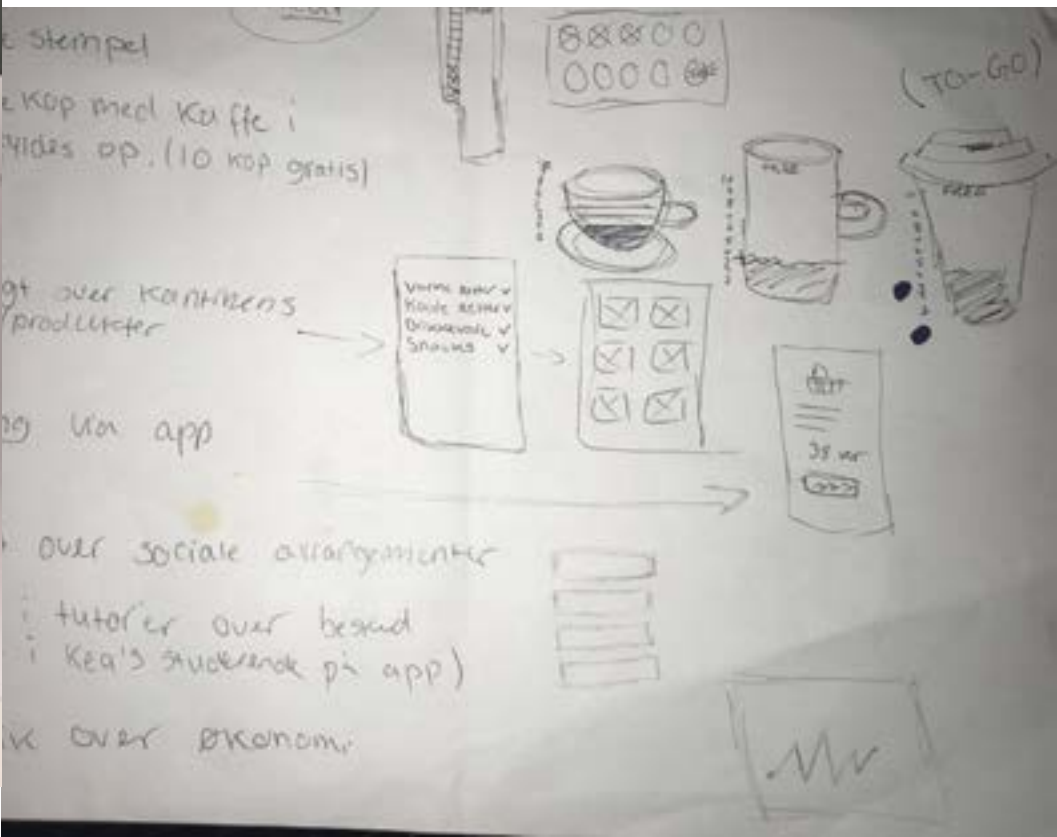 e stempel
e kop med kaffe i
yldes op. (10 kop gratis)
(TO-GO)
FREE
FREE
gt over kantinens
produkter
Varme retter v
Kolde retter v
Drikkevarer v
Snacks v
ng via app
38 kr
over sociale arrangementer
i tutor'er over besked
i Kea's studerende på app)
ik over økonomi